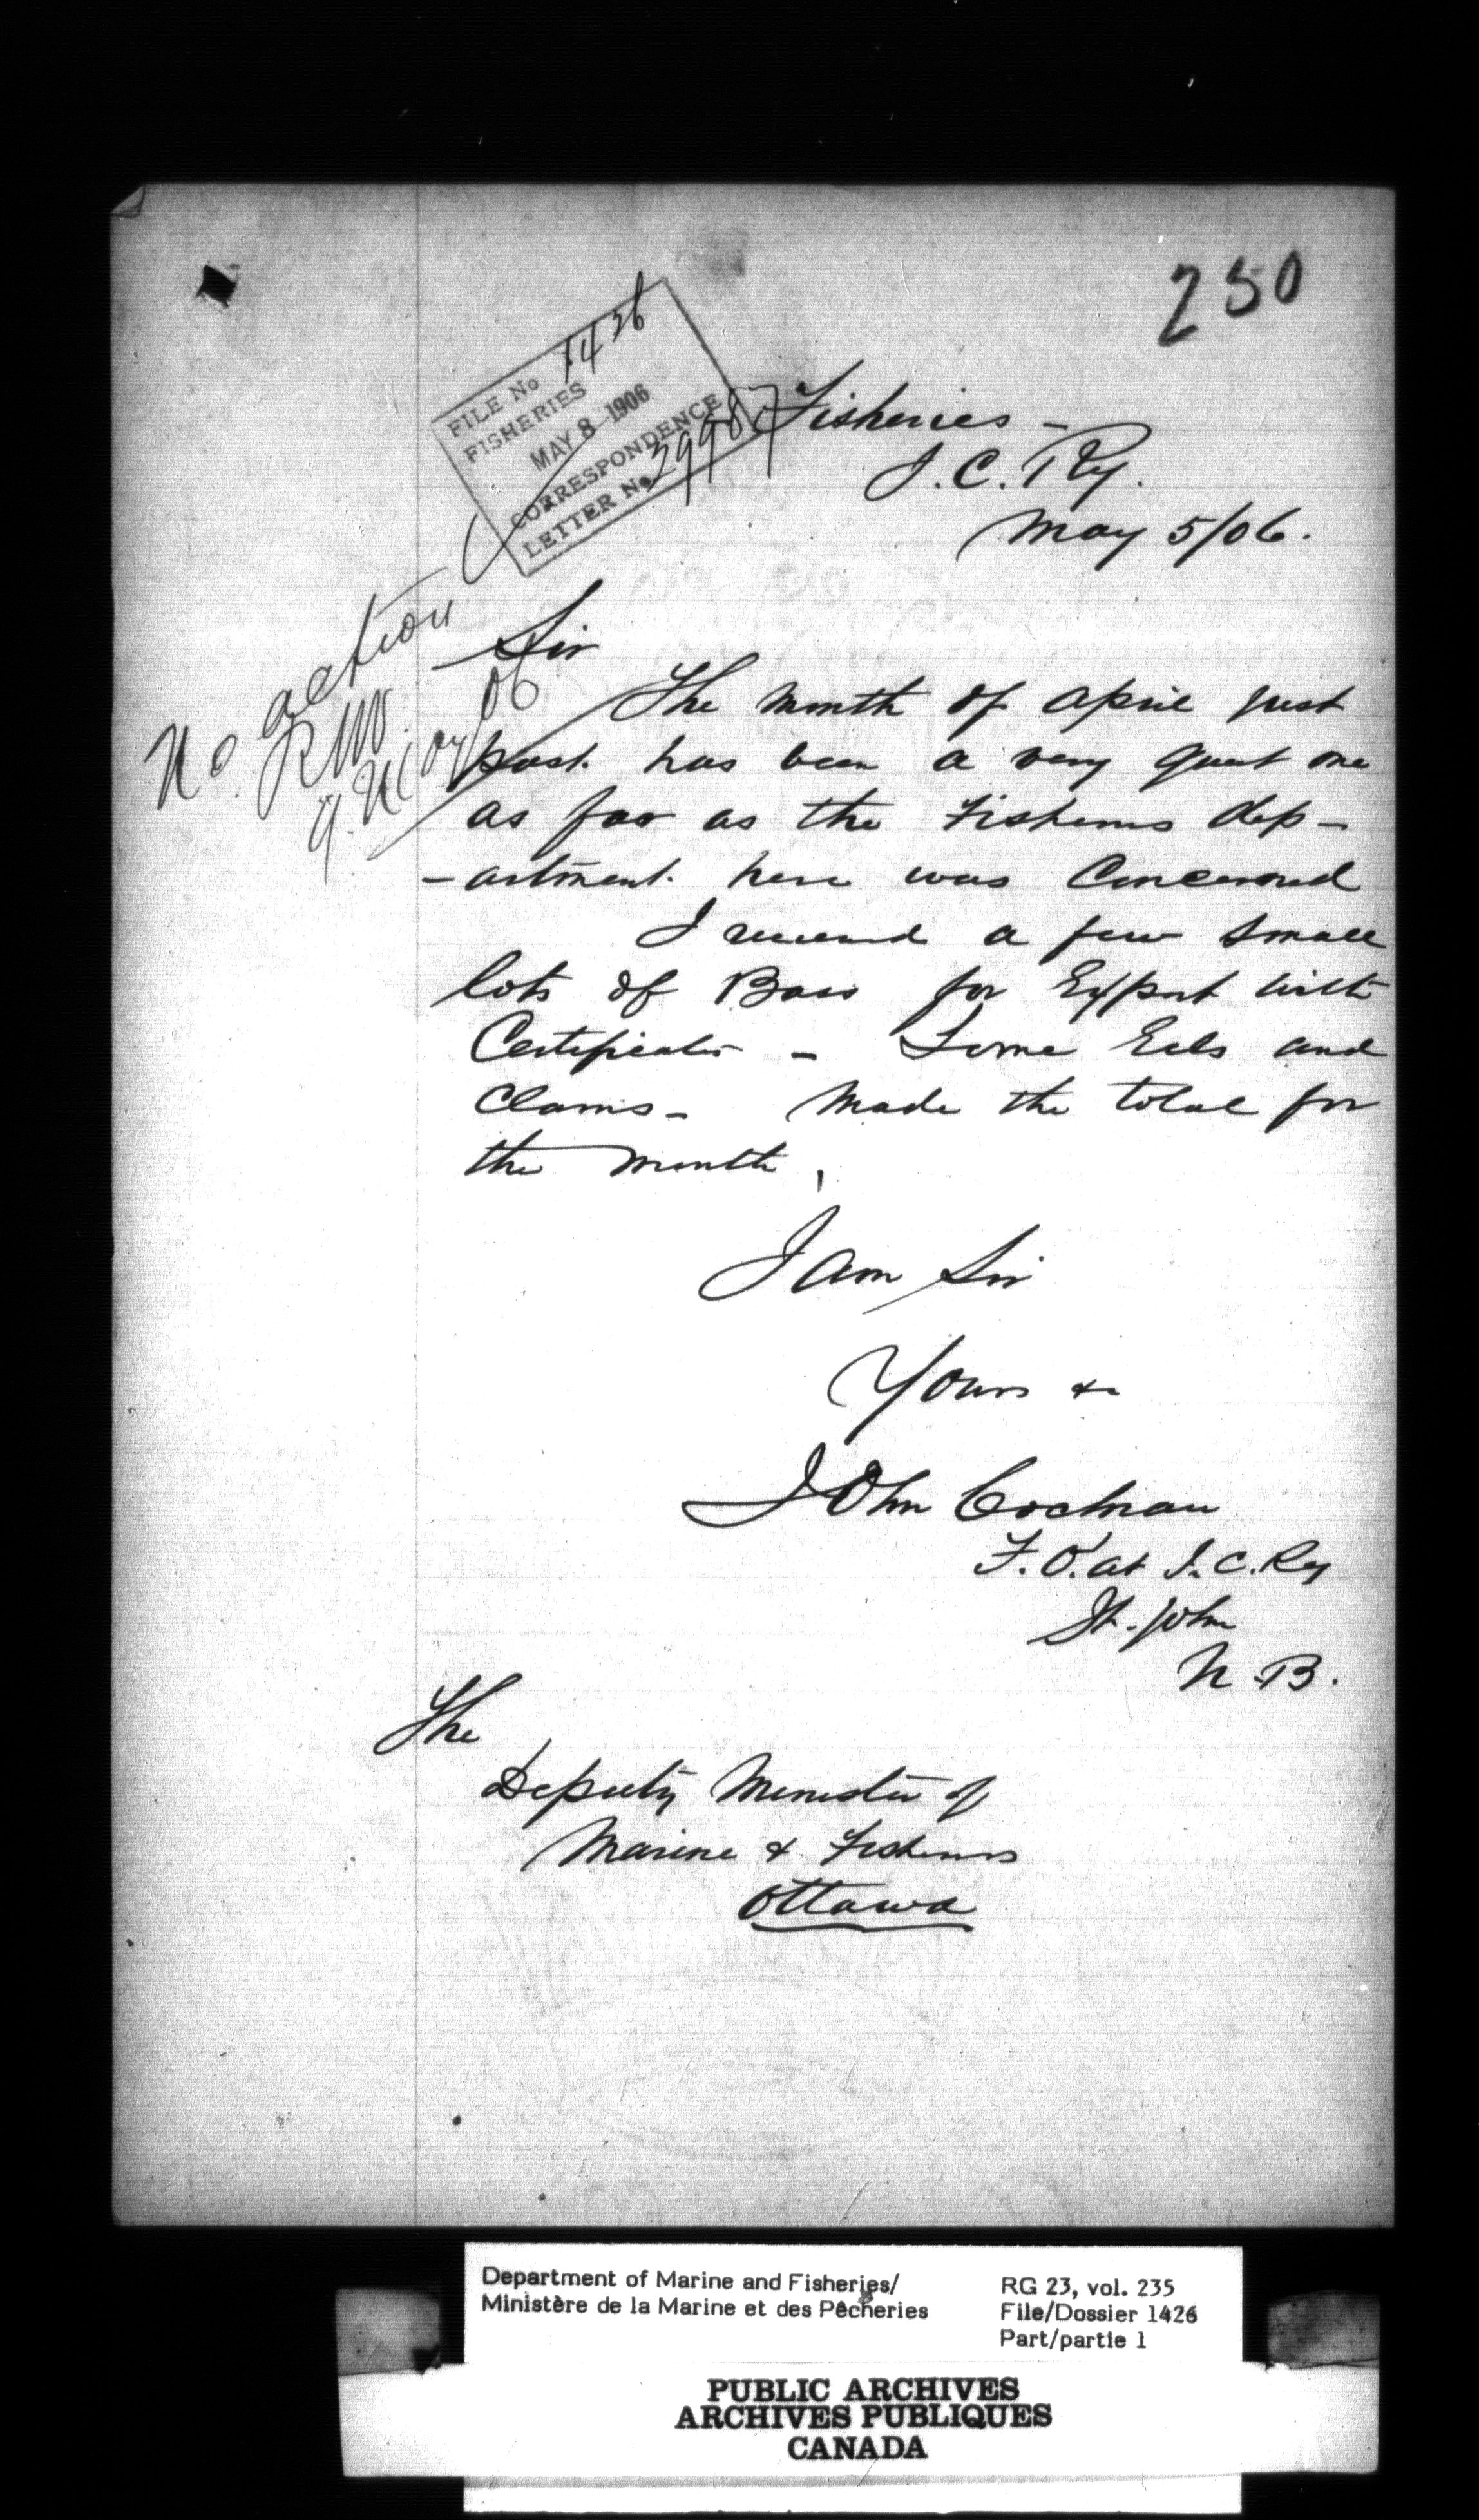 250
FILE No 1426
FISHERIES
MAY 8 1906
CORRESPONDENCE
LETTER No 29987
Fisheries -
I. C. Ry.
May 5/06.
No action
9. May 06
Sir
The month of April just
past has been a very quiet one
as far as the Fisheries dep-
-artment here was Concerned
I received a few small
lots of Bass for Export with
Certificates - Some Eels and
Clams - Made the total for
the month.
I am Sir
Yours &c
John Cochran
F. O. at I. C. Ry
St. John
N.B.
The
Deputy Minister of
Marine & Fisheries
Ottawa
Department of Marine and Fisheries/
Ministère de la Marine et des Pêcheries
RG 23, vol. 235
File/Dossier 1426
Part/partie 1
PUBLIC ARCHIVES
ARCHIVES PUBLIQUES
CANADA